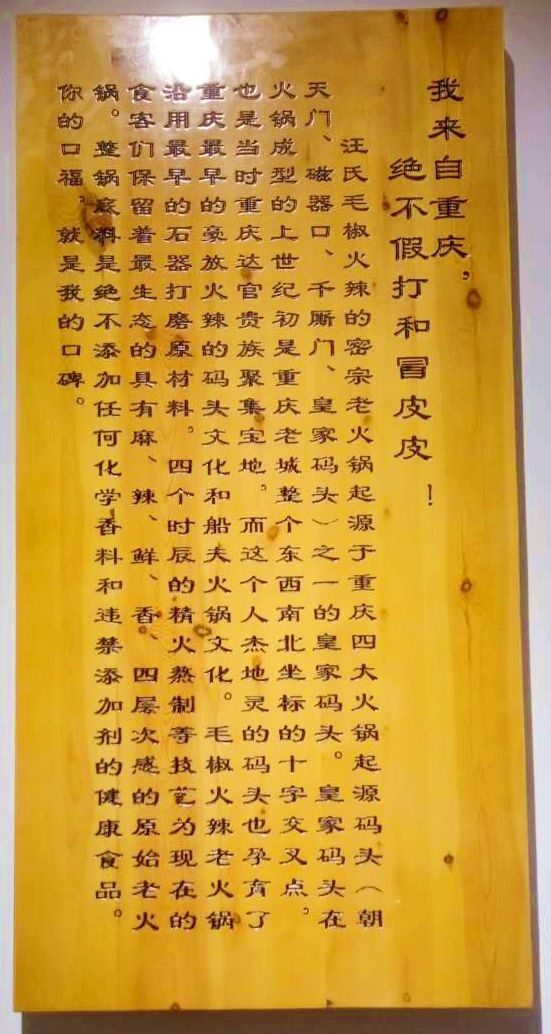 我来自重庆，
绝不假打和冒皮皮！
汪氏毛椒火辣的密宗老火锅起源于重庆四大火锅起源码头（朝
天门、磁器口、千厮门、皇家码头）之一的皇家码头。皇家码头在
火锅成型的上世纪初是重庆老城整个东西南北坐标的十字交叉点，
也是当时重庆达官贵族聚集宝地。而这个人杰地灵的码头也孕育了
重庆最早的豪放火辣的码头文化和船夫火锅文化。毛椒火辣老火锅
沿用最早的石器打磨原材料。四个时辰的精火熬制等技艺为现在的
食客们保留着最生态的具有麻、辣、鲜、香、四层次感的原始老火
锅。整锅底料是绝不添加任何化学香料和违禁添加剂的健康食品。
你的口福。就是我的口碑。